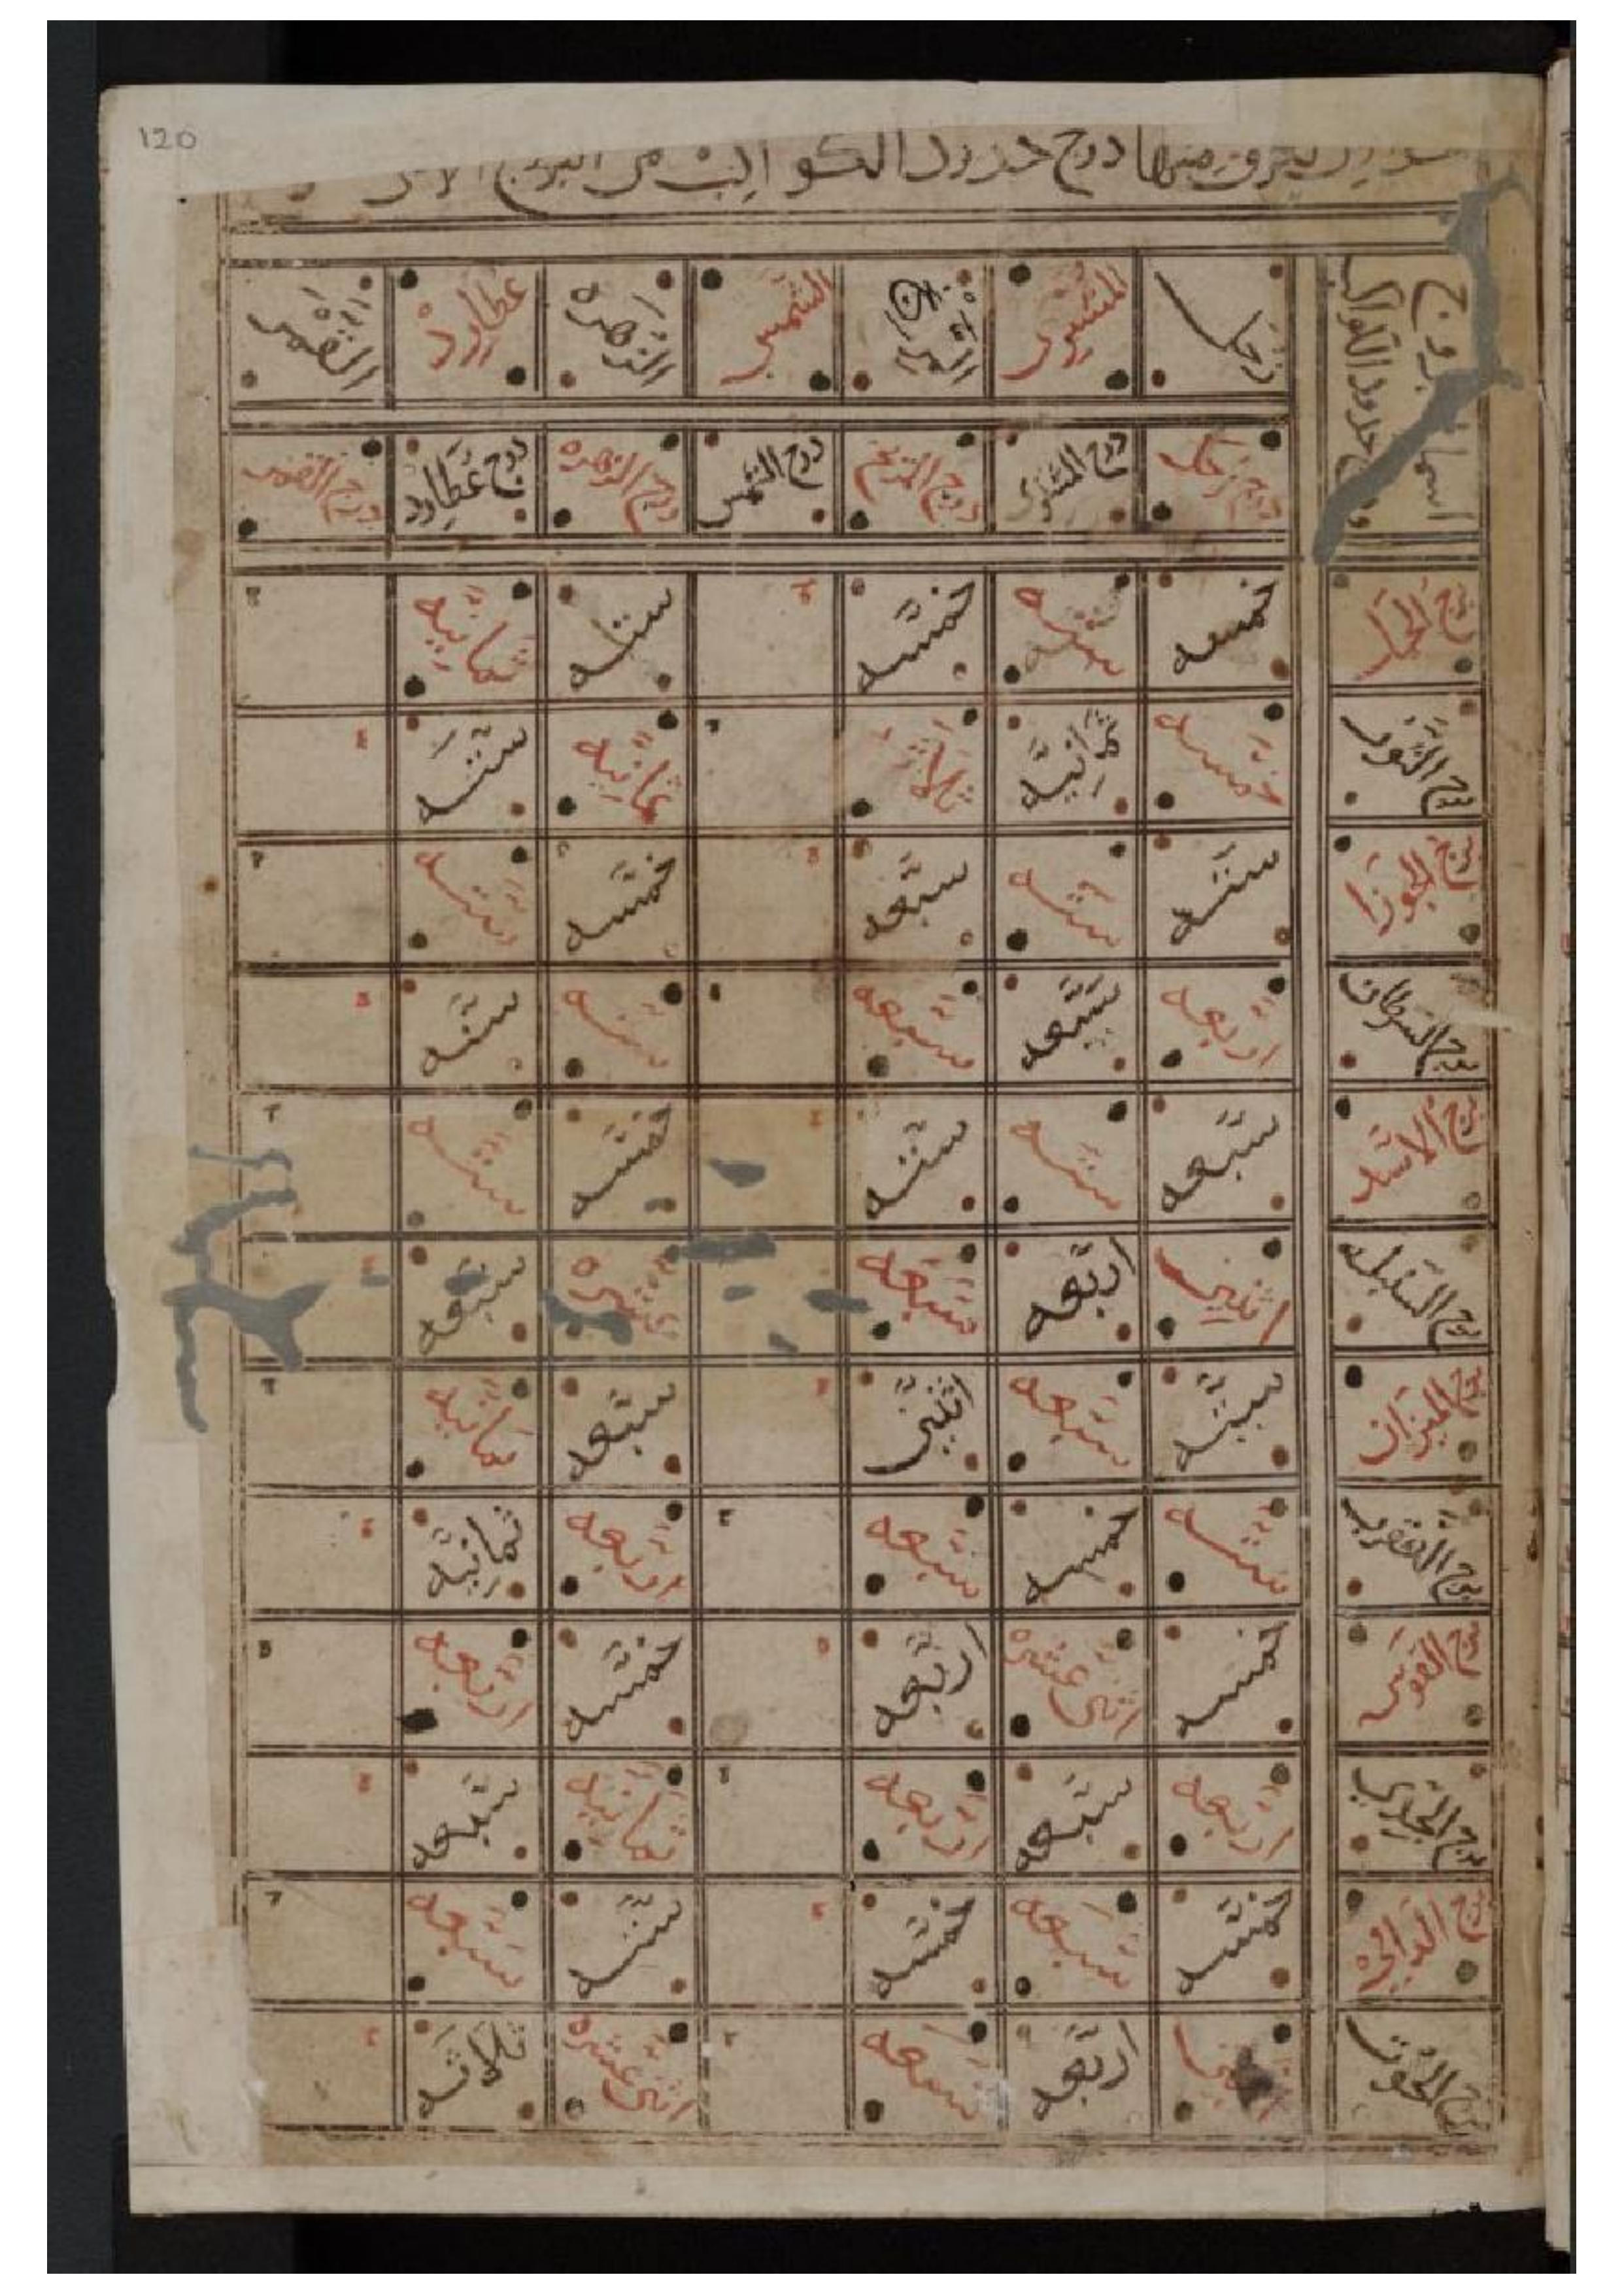 120
يعرف منها درج حدود الكواكب من البروج
اسما البروج
حدود الكواكب
زحل المشترى المريخ الشمس الزهره عطارد القمر
درج زحل درج المشترى درج المريخ درج الشمس درج الزهره درج عطارد درج القمر
برج الحمل خمسه سته خمسه سته ثمانيه
برج الثور خمسه ثمانيه ثلاثه ثمانيه سته
برج الجوزا سته سته سبعه خمسه سته
برج السرطان اربعه سبعه سبعه سته سته
برج الاسد سبعه سته سته خمسه سته
برج السنبله اثنين اربعه سبعه عشره سبعه
برج الميزان سته سبعه اثنين سبعه ثمانيه
برج العقرب سته خمسه سبعه اربعه ثمانيه
برج القوس خمسه اثنى عشره اربعه خمسه اربعه
برج الجدي اربعه سبعه اربعه ثمانيه سبعه
برج الدالي خمسه سبعه خمسه سته سبعه
برج الحوت اربعه تسعه اثنى عشره ثلاثه